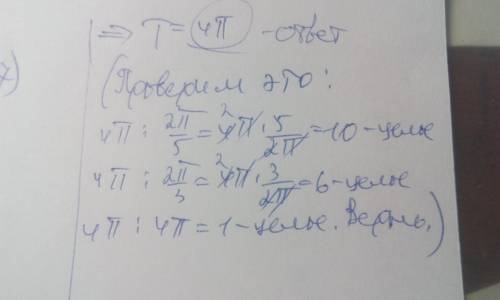 7)
|⇒ T = 4π - ответ
(Проверим это:
4π : 2π/5 = 4π · 5/2π = 10 - целые
4π : 2π/3 = 4π · 3/2π = 6 - целые
4π : 4π = 1 - целые. Верно.)